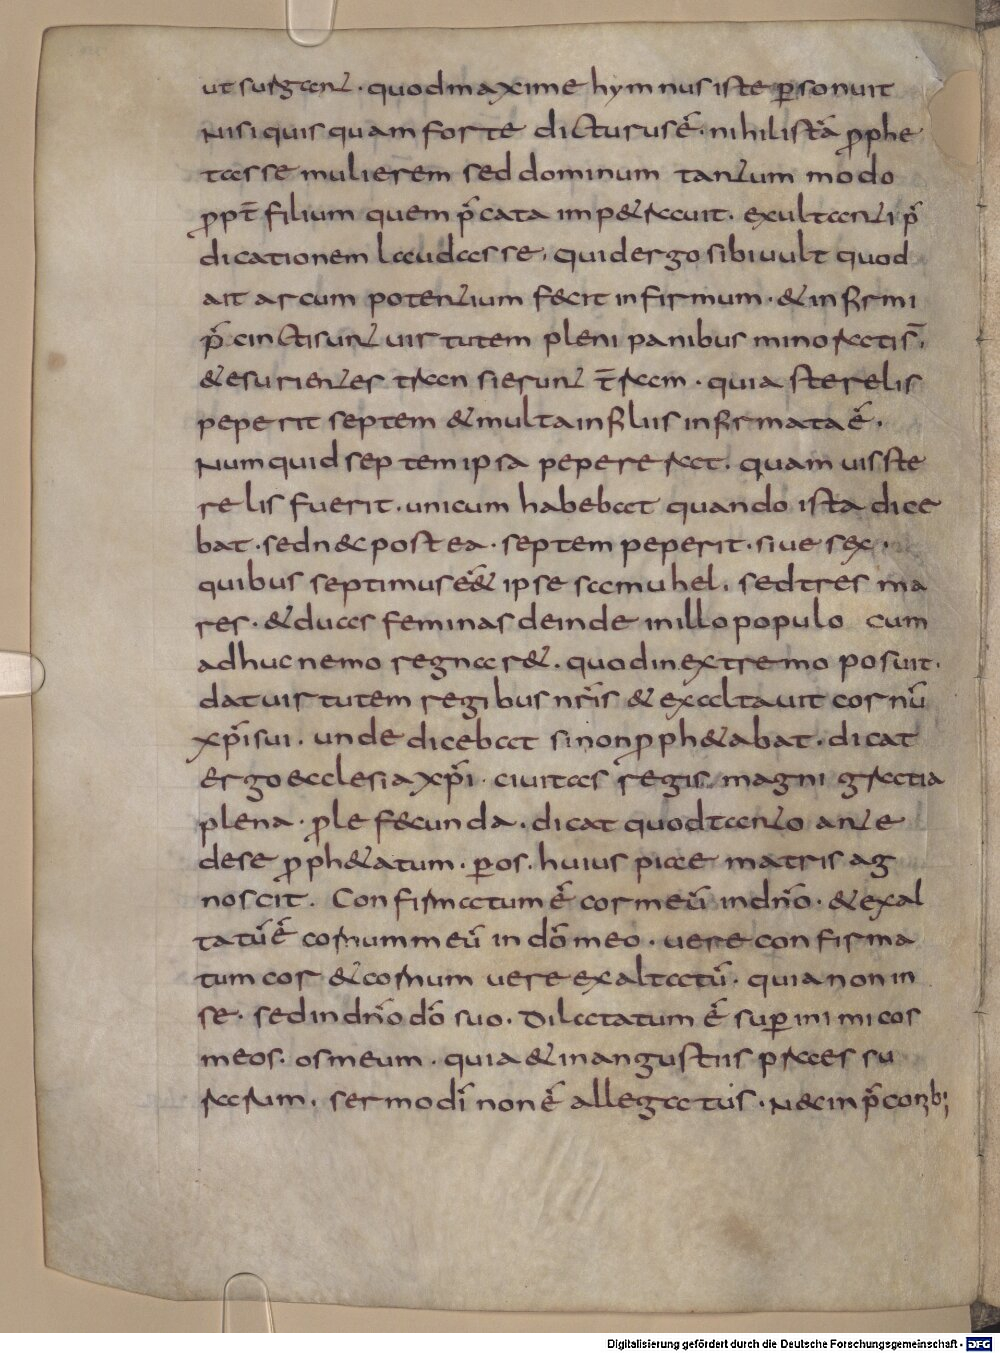 ut surgant . quod maxime hymnus iste ꝑsonuit
Nisi quisquam forte dicturus ē̃ . nihil istā ꝓphe
tasse mulierem sed dominum tantum modo
ꝓpt̄ filium quem p̃cata imp&rauit . exultanti p̃
dicationem laudasse . quid ergo sibi uult quod
ait arcum potentium fecit infirmum . & infirmi
p̃cincti sunt uirtutem pleni panibus minorati s̄ .
& esurientes transierunt t̄ram . quia sterelis
peperit septem & multa in filiis infirmata ē̃ .
Numquid septem ipsa pepererat . quamuis ste
relis fuerit . unicum habebat quando ista dice
bat . sed nec postea . septem peperit . siue sex .
quibus septimus ē̃&̃ ipse samuhel . sed tres ma
res . & duas feminas deinde in illo populo cum
adhuc nemo regnar& . quod in extremo posuit .
dat uirtutem regibus nr̃is & exaltauit cornū
xp̃i sui . unde dicebat si non ꝓph&abat . dicat
ergo ecclesia xp̃i . ciuitas regis magni gratia
plena . ꝓle fecunda . dicat quod tanto ante
de se ꝓph&atum . ꝑ os . huius piae matris ag
noscit . Confirmatum ē̃ cor meū in dn̄o . & exal
tatū ē̃ cornum meū in dō meo . uere confirma
tum cor & cornum uere exaltatū . quia non in
se . sed in dn̄o dō suo . Dilatatum ē̃ suꝑ inimicos
meos . os meum . quia & in angustiis praes su
rarum . sermo dī non ē̃ allegatus . Nec in p̃conib;
Digitalisierung gefördert durch die Deutsche Forschungsgemeinschaft - DFG